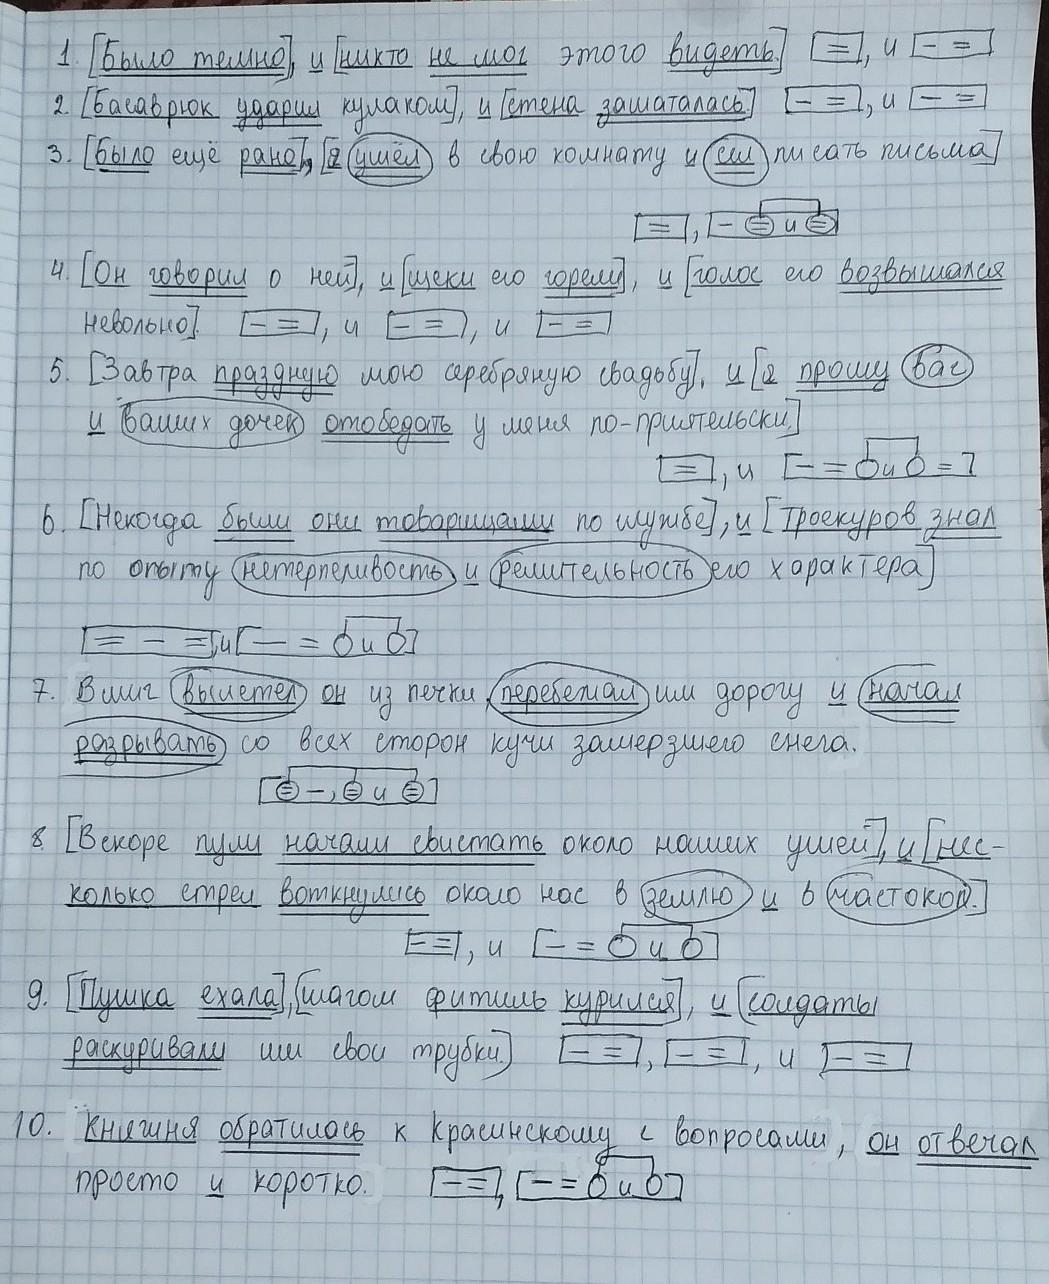 1. [Было темно], и [никто не мог этого видеть.] [=], и [- =]
2. [Басаврюк ударил кулаком], и [стена зашаталась.] [- =], и [- =]
3. [Было ещё рано], [я ушёл в свою комнату и сел писать письма]
[=], [- = и =]
4. [Он говорил о ней], и [щеки его горели], и [голос его возвышался
невольно]. [- =], и [- =), и [- =]
5. [Завтра праздную мою серебряную свадьбу], и [я прошу вас
и ваших дочек отобедать у меня по-приятельски.]
[=], и [- = О и О = ]
6. [Некогда были они товарищами по службе], и [Троекуров знал
по опыту нетерпеливость и решительность его характера]
[= - =], и [- = О и О]
7. Вмиг вылетел он из печки, перебежал им дорогу и начал
разрывать со всех сторон кучи замерзшего снега.
[= -, = и =]
8. [Вскоре пули начали свистать около наших ушей], и [нес-
колько стрел воткнулись около нас в землю и в частокол.]
[- =], и [- = О и О]
9. [Пушка ехала], [шагом фитиль курился], и [солдаты
раскуривали им свои трубки.] [- =], [- =], и [- =]
10. Княжня обратилась к Красинскому с вопросами, он отвечал
просто и коротко. [- =], [- = О и О]